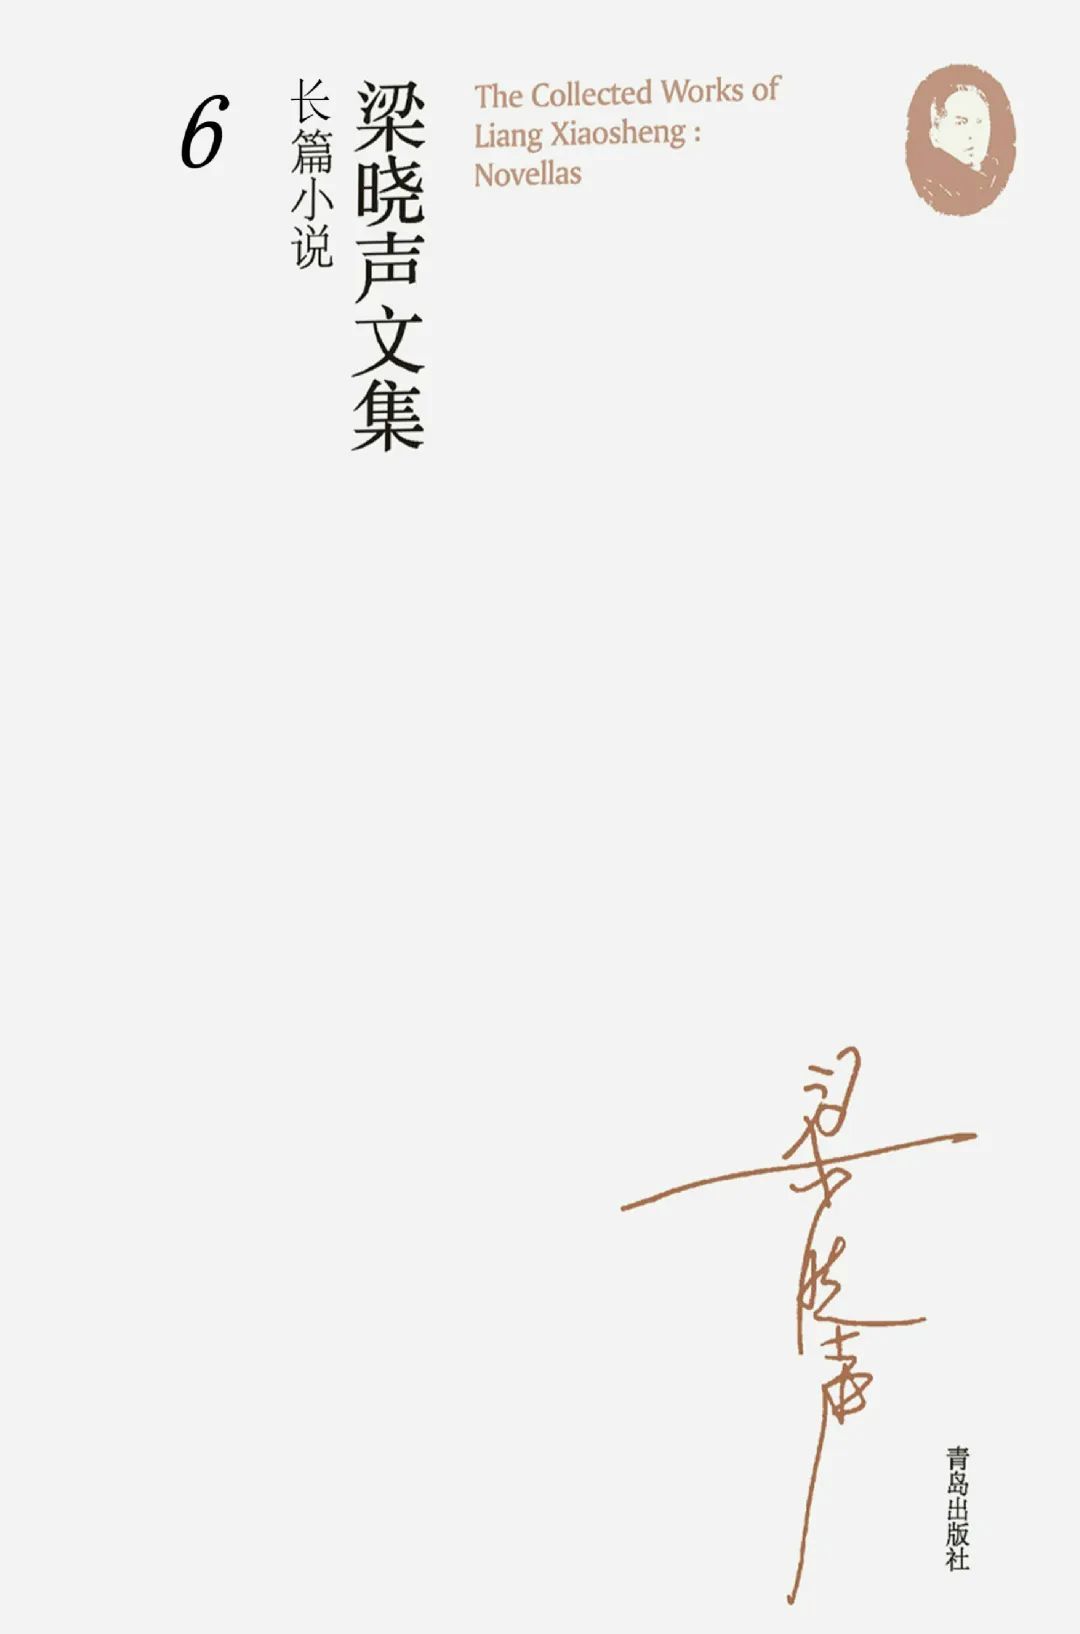 6
长篇小说
梁晓声文集
The Collected Works of
Liang Xiaosheng :
Novellas
梁晓声
青岛出版社